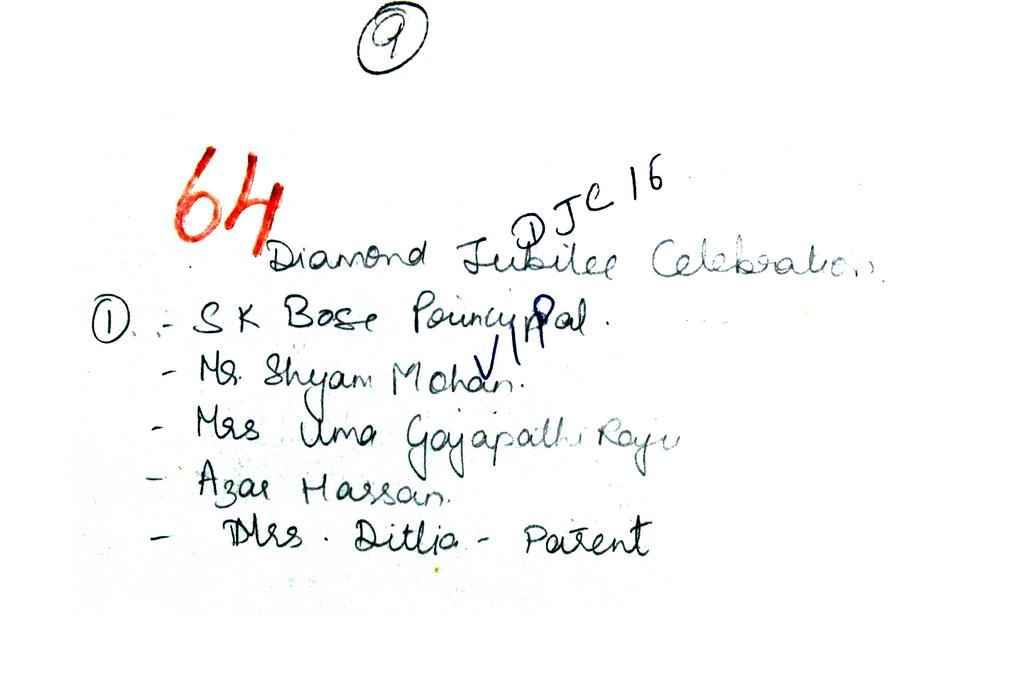 9
64
DJC 16
Diamond Jubilee Celebration
① - S K Bose Princippal.
VIP
- Mr. Shyam Mohan.
- Mrs Uma Gajapathi Raju
- Azar Hassan.
- Mrs. Ditlia - Parent